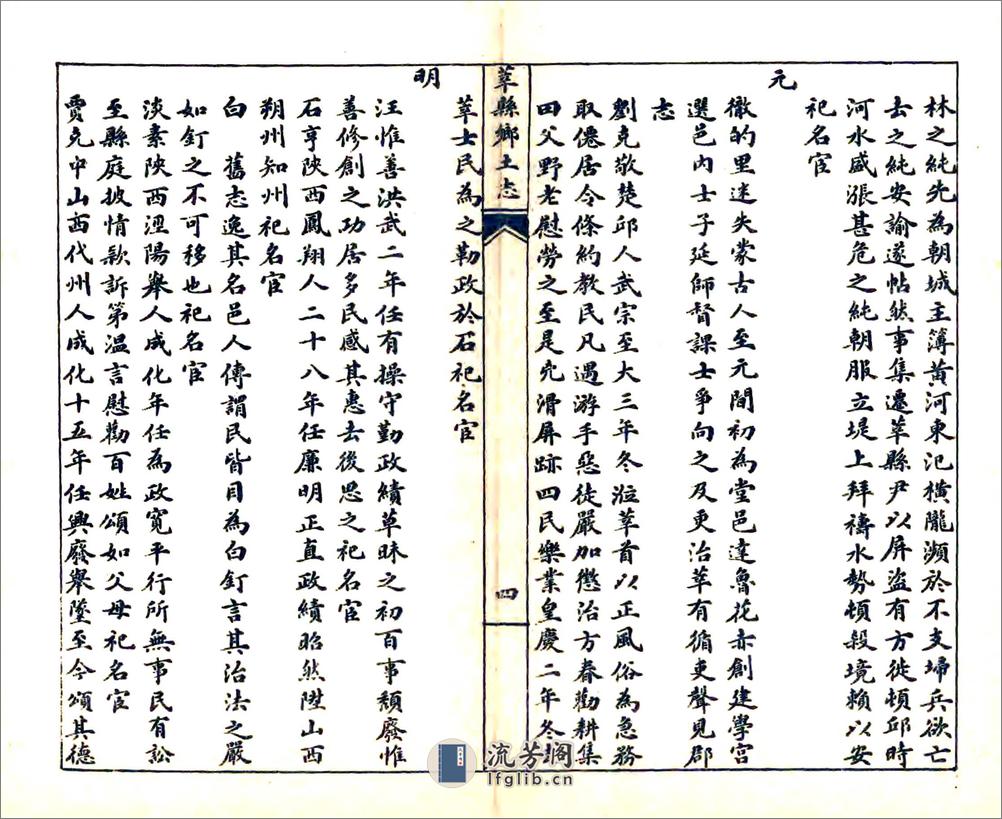 林之純先為朝城主簿黃河東汜橫隴瀕於不支埽兵欲亡
去之純安諭遂帖然事集遷莘縣尹以屏盜有方徙頓邱時
河水盛漲甚危之純朝服立堤上拜禱水勢頓殺境賴以安
祀名宦
元
徹的里迷失蒙古人至元間初為堂邑達魯花赤創建學宮
選邑內士子延師督課士爭向之及更治莘有循吏聲見郡
志
劉克敬楚邱人武宗至大三年冬涖莘首以正風俗為急務
取僊居令條約教民凡遇游手惡徒嚴加懲治方春勸耕集
田父野老慰勞之至是宄滑屏跡四民樂業皇慶二年冬
莘縣鄉土志
四
莘士民為之勒政於石祀名宦
明
汪惟善洪武二年任有操守勤政績草昧之初百事頹廢惟
善修創之功居多民感其惠去後思之祀名宦
石亨陝西鳳翔人二十八年任廉明正直政績昭然陞山西
朔州知州祀名宦
白 舊志逸其名邑人傳謂民皆目為白釘言其治法之嚴
如釘之不可移也祀名宦
淡素陝西涇陽舉人成化年任為政寬平行所無事民有訟
至縣庭披情款訴第溫言慰勸百姓頌如父母祀名宦
賈克中山西代州人成化十五年任興廢舉墜至今頌其德
流芳閣
lfglib.cn